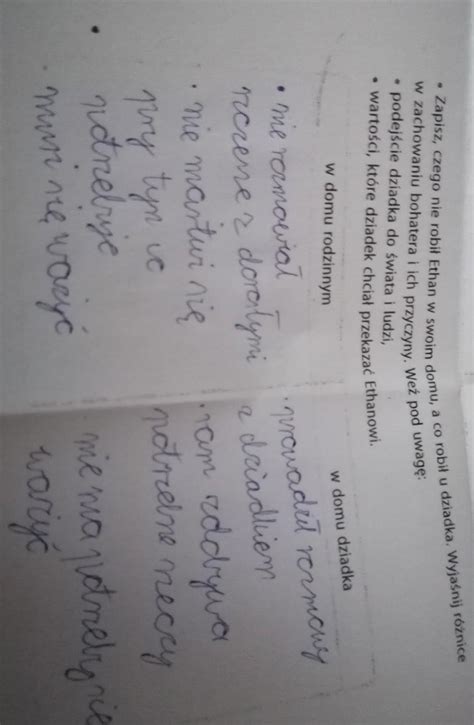 • Zapisz, czego nie robił Ethan w swoim domu, a co robił u dziadka. Wyjaśnij różnice
w zachowaniu bohatera i ich przyczyny. Weź pod uwagę:
• podejście dziadka do świata i ludzi,
• wartości, które dziadek chciał przekazać Ethanowi.
w domu rodzinnym
• nie rozmawiał
z dorosłymi
• nie martwi się
przy tym co
potrzebuje
• musi się ważyć
w domu dziadka
• prowadził rozmowy
z dziadkiem
• sam zdobywa
potrzebne rzeczy
nie ma potrzeby się
ważyć